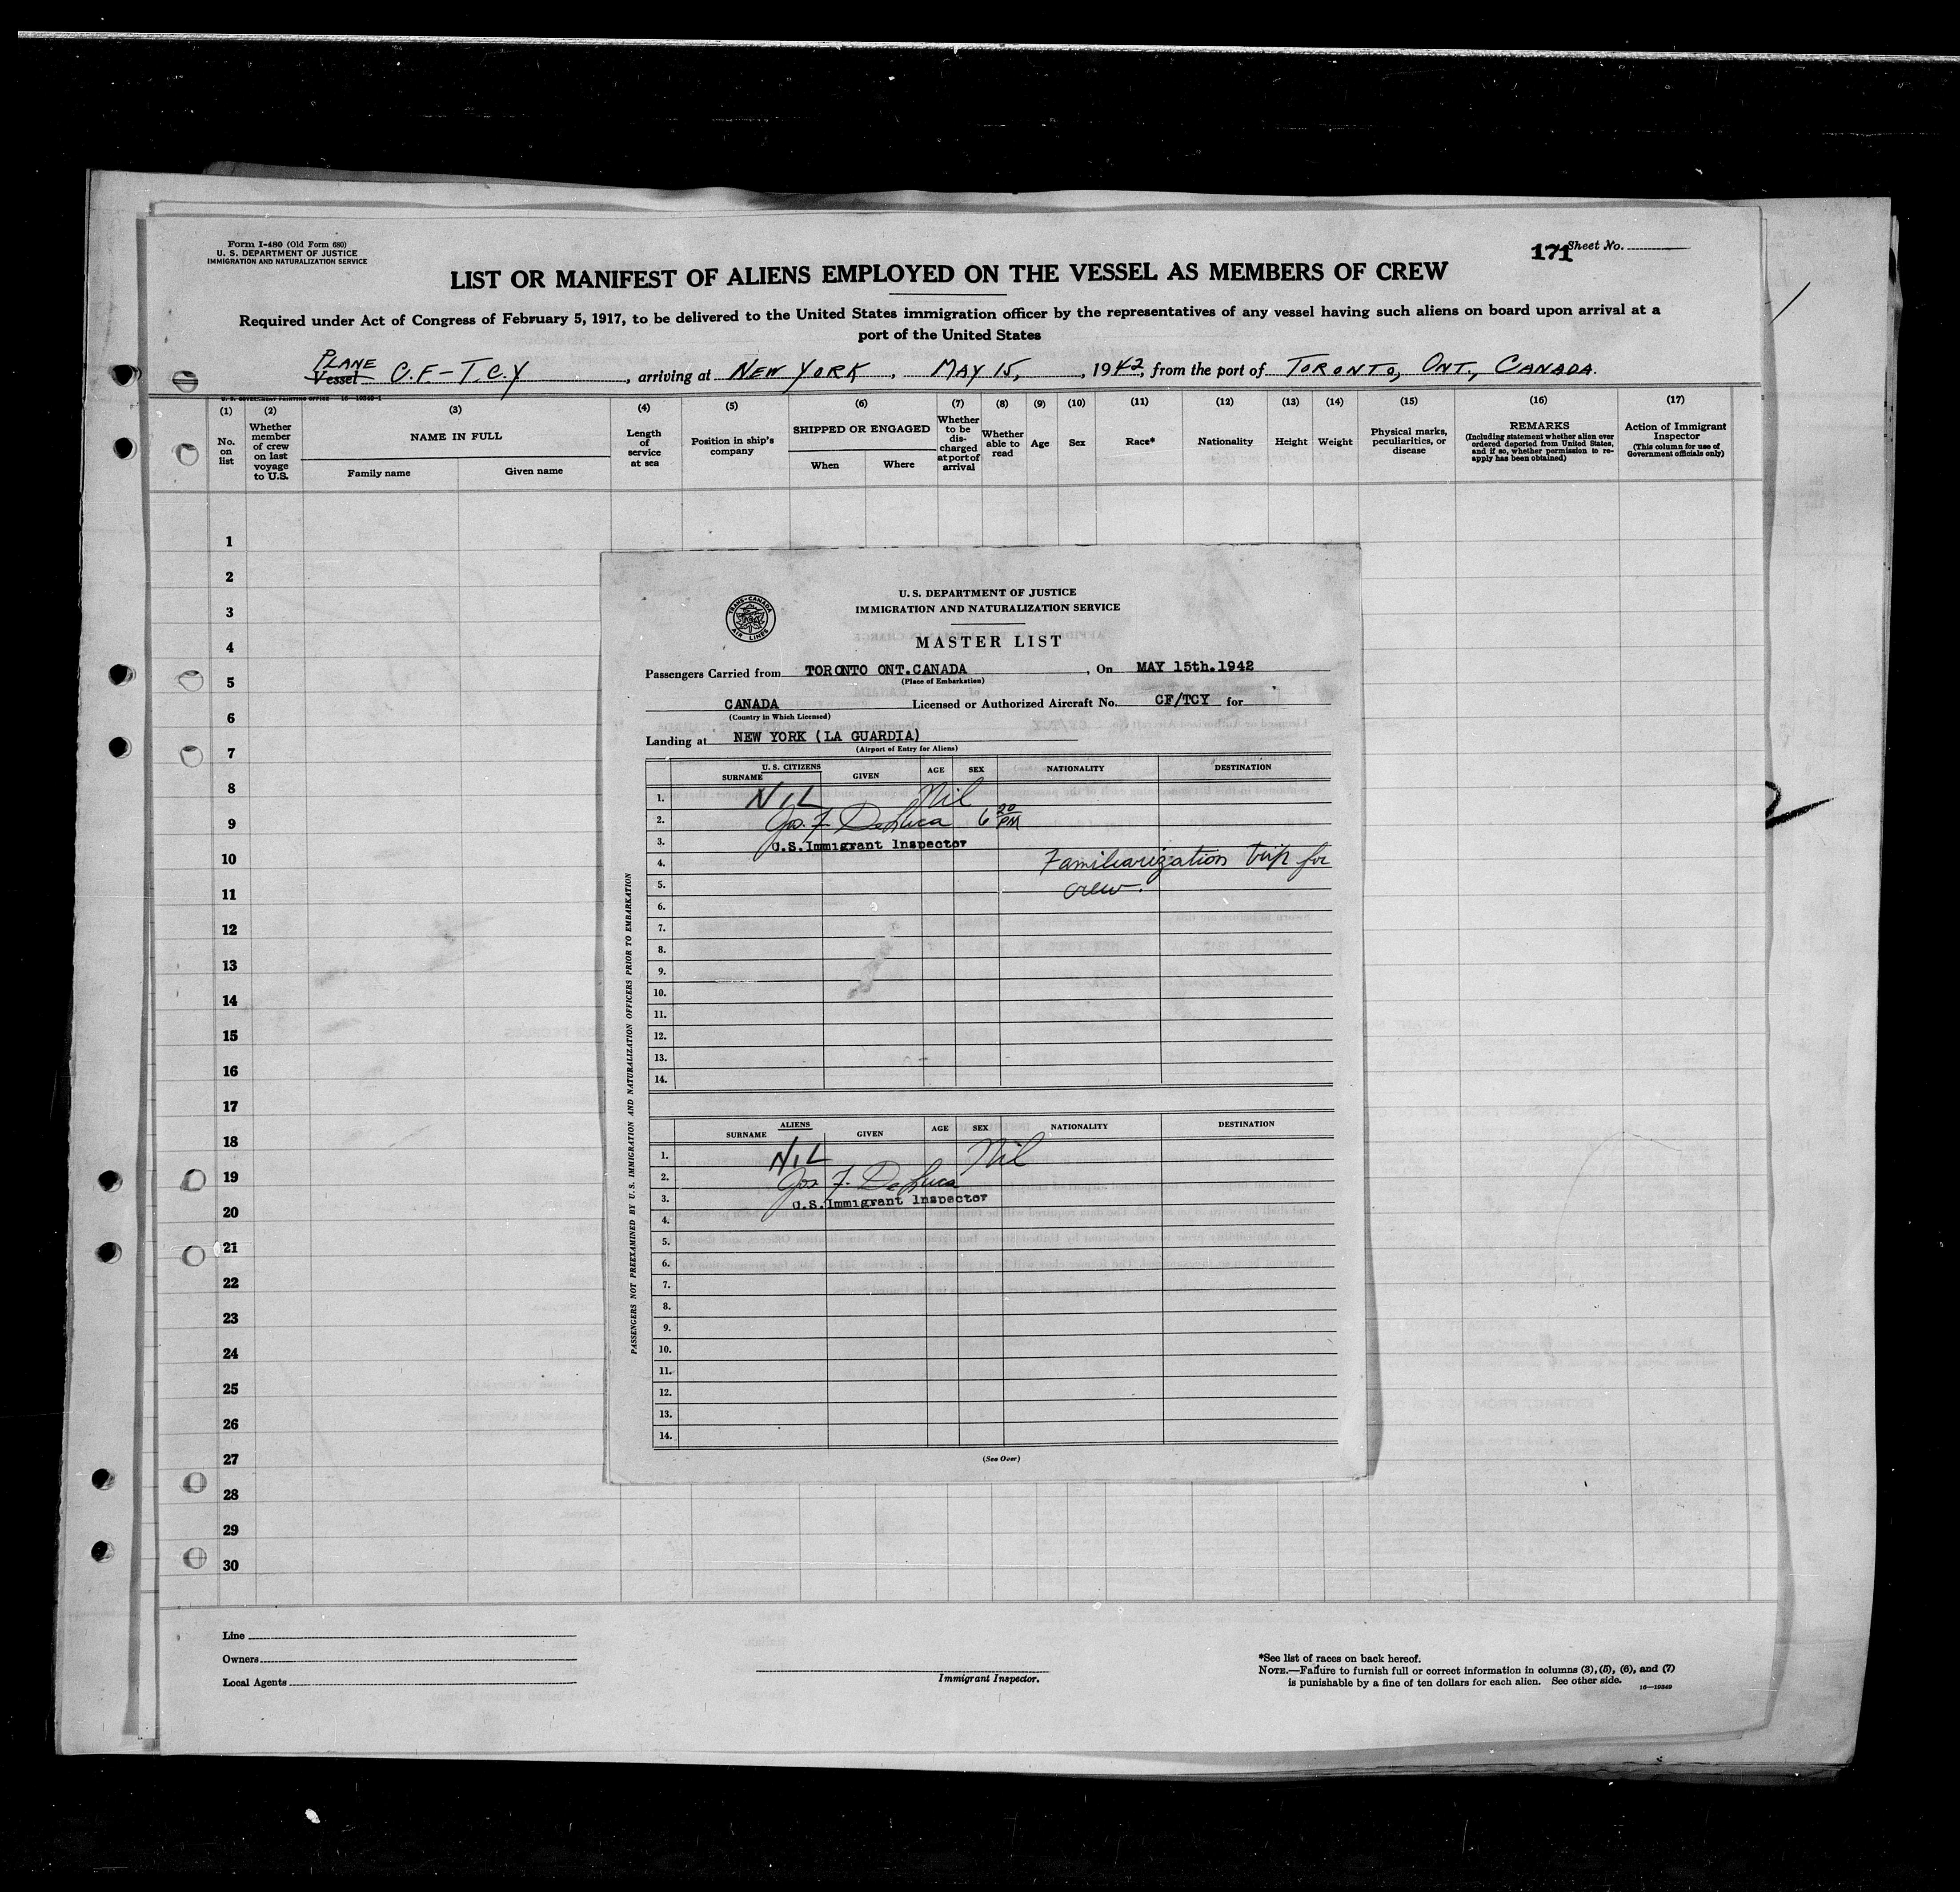 Form I-480 (Old Form 680)
U. S. DEPARTMENT OF JUSTICE
IMMIGRATION AND NATURALIZATION SERVICE
171 Sheet No.
LIST OR MANIFEST OF ALIENS EMPLOYED ON THE VESSEL AS MEMBERS OF CREW
Required under Act of Congress of February 5, 1917, to be delivered to the United States immigration officer by the representatives of any vessel having such aliens on board upon arrival at a
port of the United States
PLANE
Vessel C.F.-T.C.Y, arriving at NEW YORK, MAY 15, 1942, from the port of TORONTO, ONT., CANADA.
U. S. GOVERNMENT PRINTING OFFICE 16-19349-1
(1) (2) (3) (4) (5) (6) (7) (8) (9) (10) (11) (12) (13) (14) (15) (16) (17)
No. on list
Whether member of crew on last voyage to U.S.
NAME IN FULL
Family name
Given name
Length of service at sea
Position in ship's company
SHIPPED OR ENGAGED
When
Where
Whether to be discharged at port of arrival
Whether able to read
Age
Sex
Race*
Nationality
Height
Weight
Physical marks, peculiarities, or disease
REMARKS
(Including statement whether alien ever ordered deported from United States, and if so, whether permission to reapply has been obtained)
Action of Immigrant Inspector
(This column for use of Government officials only)
1
2
3
4
5
6
7
8
9
10
11
12
13
14
15
16
17
18
19
20
21
22
23
24
25
26
27
28
29
30
TRANS-CANADA AIR LINES
U. S. DEPARTMENT OF JUSTICE
IMMIGRATION AND NATURALIZATION SERVICE
MASTER LIST
Passengers Carried from TORONTO ONT.CANADA, On MAY 15th.1942
(Place of Embarkation)
CANADA Licensed or Authorized Aircraft No. CF/TCY for
(Country in Which Licensed)
Landing at NEW YORK (LA GUARDIA)
(Airport of Entry for Aliens)
U. S. CITIZENS
SURNAME GIVEN AGE SEX NATIONALITY DESTINATION
1. NIL Nil
2. Jos. F. DeLuca 6 20 PM
3. U.S.Immigrant Inspector
4. Familiarization trip for
5. crew.
6.
7.
8.
9.
10.
11.
12.
13.
14.
ALIENS
SURNAME GIVEN AGE SEX NATIONALITY DESTINATION
1. NIL Nil
2. Jos. F. DeLuca
3. U.S.Immigrant Inspector
4.
5.
6.
7.
8.
9.
10.
11.
12.
13.
14.
(See Over)
PASSENGERS NOT PREEXAMINED BY U.S. IMMIGRATION AND NATURALIZATION OFFICERS PRIOR TO EMBARKATION
Line
Owners
Local Agents
Immigrant Inspector.
*See list of races on back hereof.
NOTE.—Failure to furnish full or correct information in columns (3), (5), (6), and (7)
is punishable by a fine of ten dollars for each alien. See other side.
16-19349